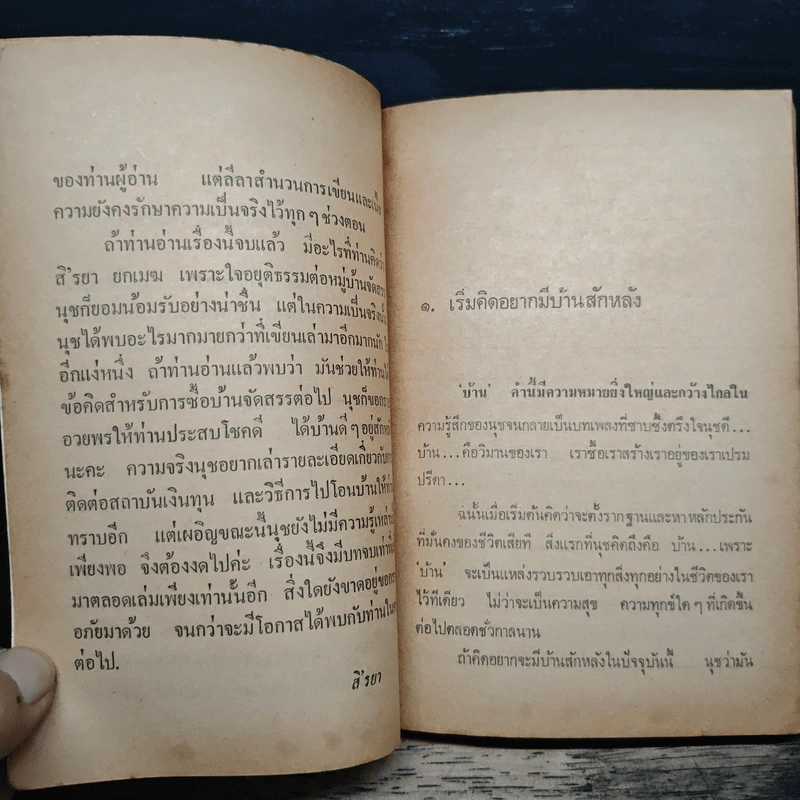 ของท่านผู้อ่าน แต่ลีลาสำนวนการเขียนและเนื้อ
ความยังคงรักษาความเป็นจริงไว้ทุก ๆ ช่วงตอน
ถ้าท่านอ่านเรื่องนี้จบแล้ว มีอะไรที่ท่านคิดว่า
สิ'รยา ยกเมฆ เพราะใจอยุติธรรมต่อหมู่บ้านจัดสรร
นุชก็ยอมน้อมรับอย่างน่าชื่น แต่ในความเป็นจริง
นุชได้พบอะไรมากมายกว่าที่เขียนเล่ามาอีกมากนัก
อีกแง่หนึ่ง ถ้าท่านอ่านแล้วพบว่า มันช่วยให้ท่าน
ข้อคิดสำหรับการซื้อบ้านจัดสรรต่อไป นุชก็ขอ
อวยพรให้ท่านประสบโชคดี ได้บ้านดี ๆ อยู่สัก
นะคะ ความจริงนุชอยากเล่ารายละเอียดเกี่ยวกับ
ติดต่อสถาบันเงินทุน และวิธีการไปโอนบ้านให้
ทราบอีก แต่เผอิญขณะนี้นุชยังไม่มีความรู้
เพียงพอ จึงต้องงดไปค่ะ เรื่องนี้จึงมีบทจบ
มาตลอดเล่มเพียงเท่านั้นอีก สิ่งใดยังขาดอยู่
อภัยมาด้วย จนกว่าจะมีโอกาสได้พบกับท่าน
ต่อไป.
สิ'รยา
๑. เริ่มคิดอยากมีบ้านสักหลัง
'บ้าน' คำนี้มีความหมายยิ่งใหญ่และกว้างไกลใน
ความรู้สึกของนุชจนกลายเป็นบทเพลงที่ซาบซึ้งตรึงใจนุชดี...
บ้าน...คือวิมานของเรา เราซื้อเราสร้างเราอยู่ของเราเปรม
ปรีดา...
ฉะนั้นเมื่อเริ่มต้นคิดว่าจะตั้งรากฐานและหาหลักประกัน
ที่มั่นคงของชีวิตเสียที สิ่งแรกที่นุชคิดถึงคือ บ้าน...เพราะ
'บ้าน' จะเป็นแหล่งรวบรวบเอาทุกสิ่งทุกอย่างในชีวิตของเรา
ไว้ทีเดียว ไม่ว่าจะเป็นความสุข ความทุกข์ใด ๆ ที่เกิดขึ้น
ต่อไปตลอดชั่วกาลนาน
ถ้าคิดอยากจะมีบ้านสักหลังในปัจจุบันนี้ นุชว่ามัน